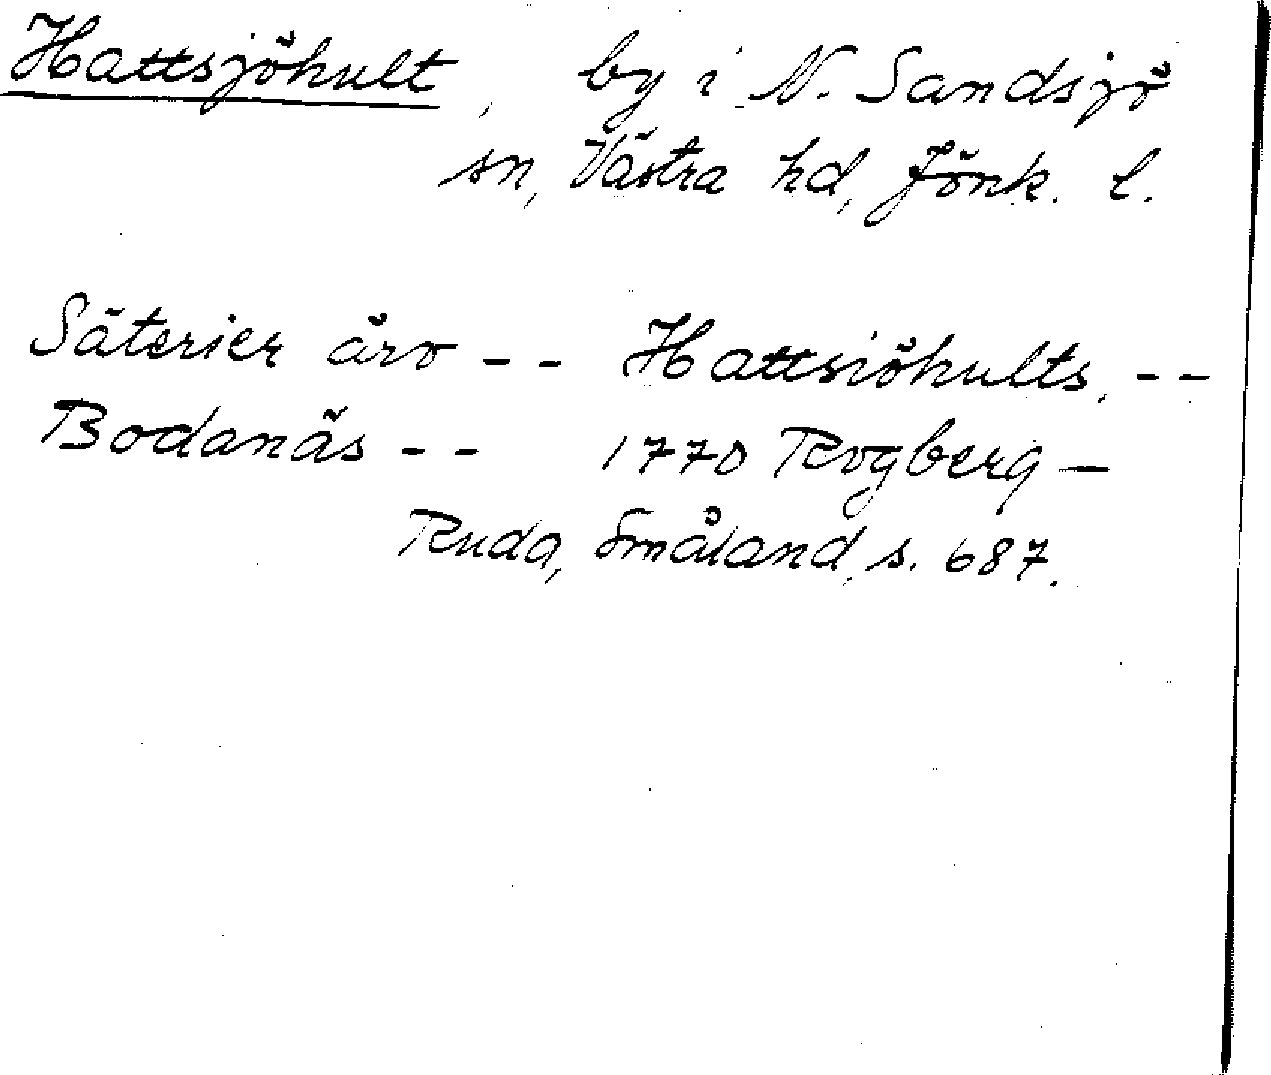 Hattsjöhult, by i N. Sandsjö
sn, Västra hd, Jönk. l.
Säterier äro -- Hattsiöhults, --
Bodanäs -- 1770 Rogberg –
Ruda, Småland, s. 687.